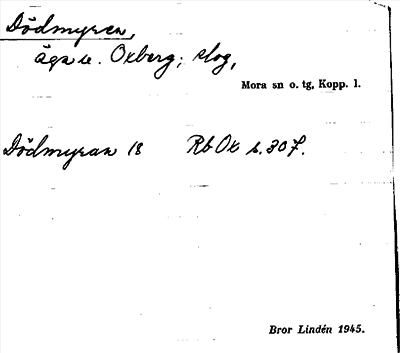 Dödmyren,
äga u. Oxberg; skog,
Mora sn o. tg, Kopp. l.
Dödmyran 18 Rb Ox s. 30 f.
Bror Lindén 1945.